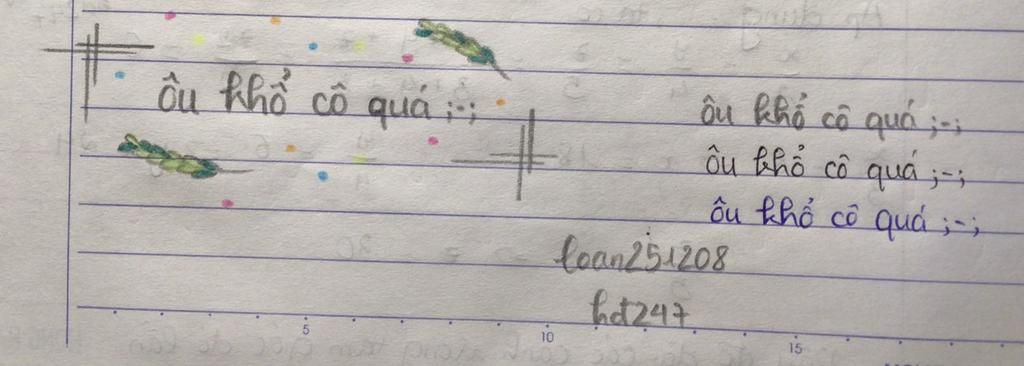 ôu khổ cô quá ;-;
ôu khổ cô quá ;-;
ôu khổ cô quá ;-;
ôu khổ cô quá ;-;
loan251208
hdt247
5
10
15